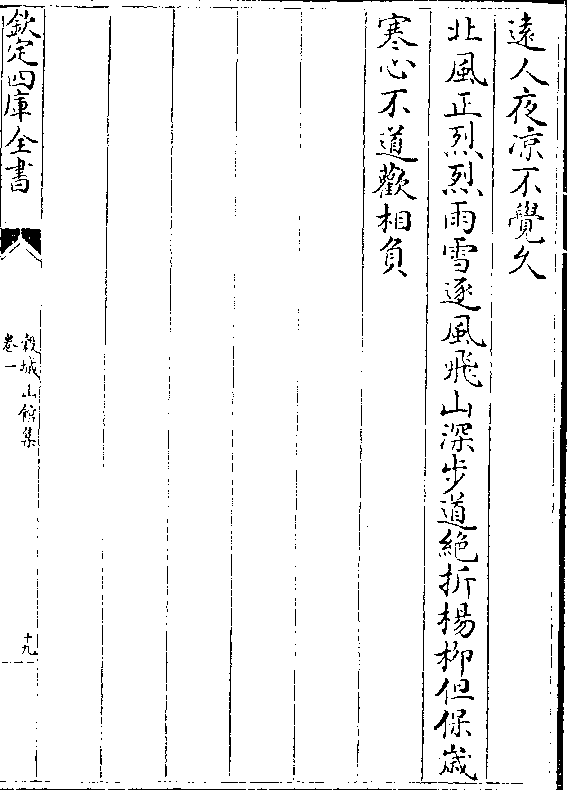 遠人夜凉不覺久
北風正烈烈雨雪逐風飛山深步道絶折楊柳但保嵗
寒心不道歡相負
欽定四庫全書
榖城山館集
卷一
十九